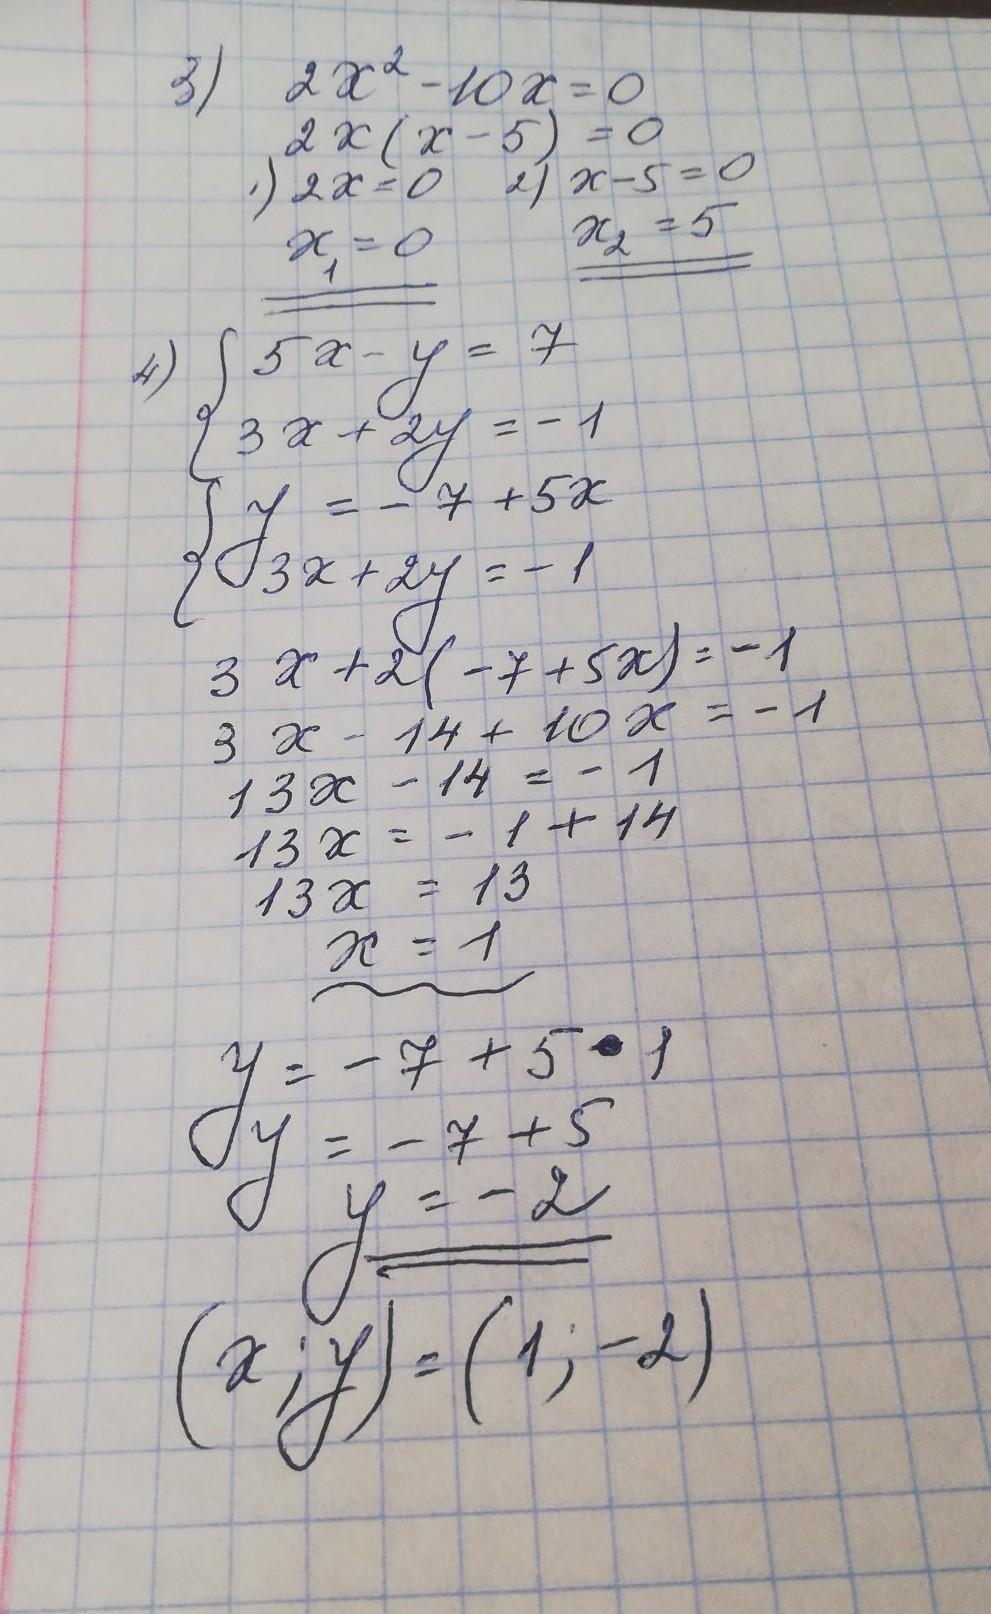 3) 2x² - 10x = 0
2x(x - 5) = 0
1) 2x = 0 2) x - 5 = 0
x₁ = 0 x₂ = 5
4) { 5x - y = 7
3x + 2y = -1
{ y = -7 + 5x
3x + 2y = -1
3x + 2(-7 + 5x) = -1
3x - 14 + 10x = -1
13x - 14 = -1
13x = -1 + 14
13x = 13
x = 1
y = -7 + 5 • 1
y = -7 + 5
y = -2
(x; y) = (1; -2)